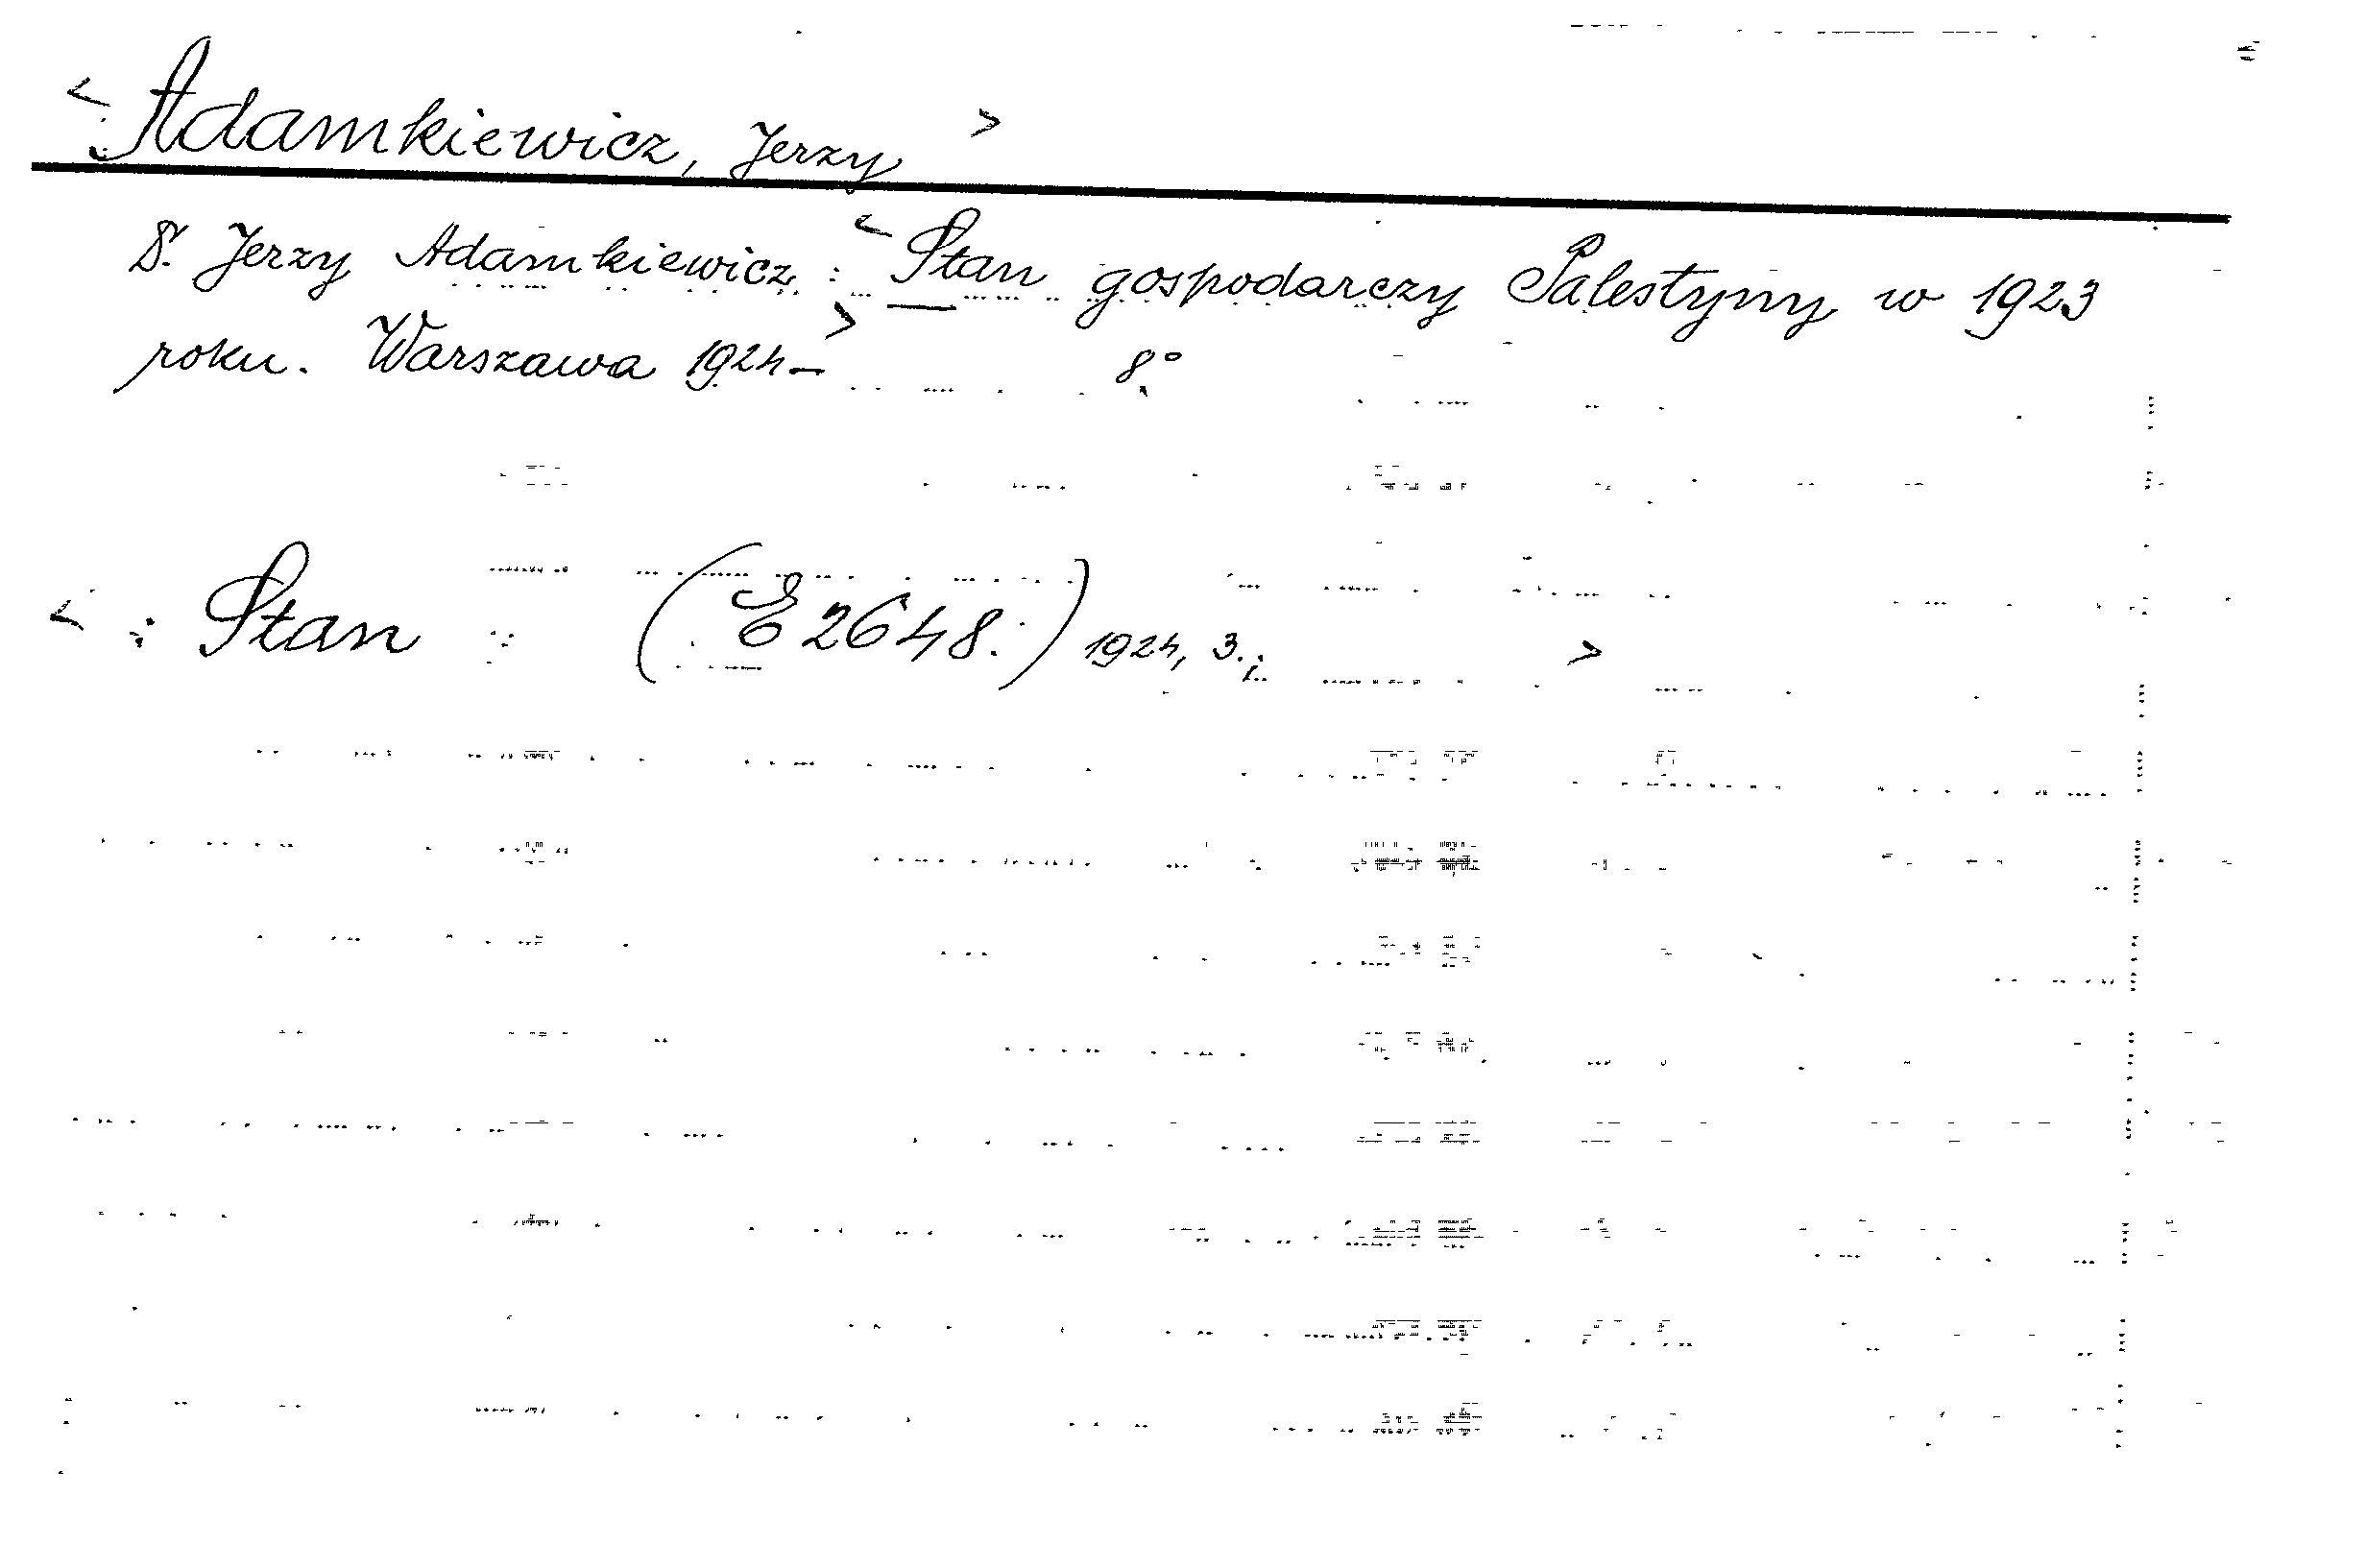 < Adamkiewicz, Jerzy >
Dr. Jerzy Adamkiewicz: < Stan gospodarczy Palestyny w 1923
roku. Warszawa 1924 – > 8°.
< : Stan (E 2648:) 1924, 3.; >